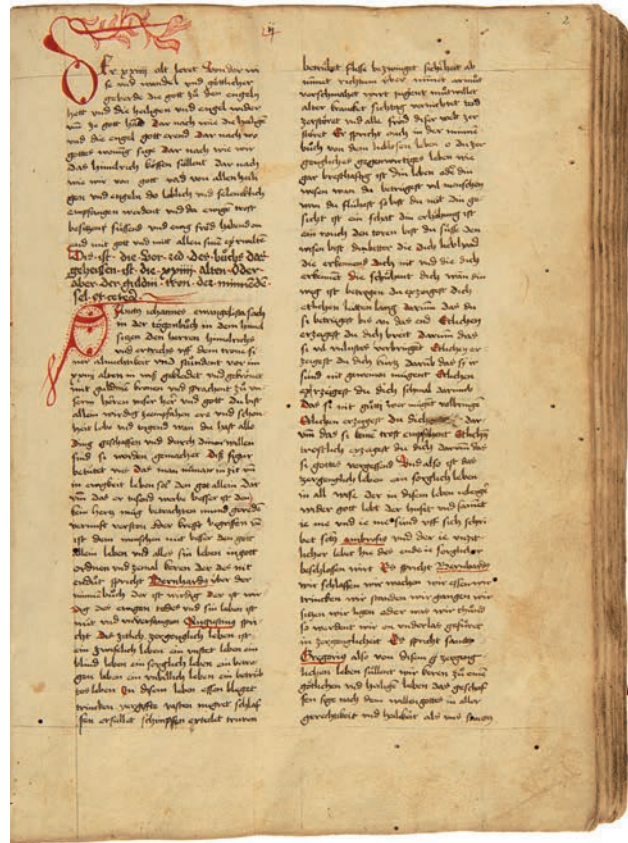 ij
2
Der xxiiij alt leret von der wi
se vnd wandel vnd götlicher
geberde die got zů den engeln
hett vnd die heiligen vnd engel wider
vm ze gott hand Dar nach wie die heiligen
vnd die engel gott erend Dar nach wo
gottes wonung sige Dar nach wie wir
das himelrich köffen süllent Dar nach
wie wir von gott vnd von allen heili
gen vnd engeln do loblich vnd
empfangen werdent vnd da ewigen trost
besitzent vnd ewig fröd habend on
end mit got vnd mit allen sinen
Dis ist die vor red des bůchs das
geheissen ist die xxiiij alten Oder
aber der guldin tron der minneden
sel et cetera
Sanctus iohannes ewangelista sach
in der tögenbůch in dem himel
sitzen den herren himelrichs
vnd ertrichs vff dem trone si
ner almechtikeit vnd stůndent vor im
xxiiij alten in wiß gekleidet vnd gekrönet
mit guldinen kronen vnd sprachent zů vn
serm herren vnser herr vnd gott Du bist
allein wirdig ze empfahen ere vnd schön
heit lob vnd tugend wan du hast alle
ding geschaffen vnd durch dinen willen
sind si worden gemachet Disß figur
betütet vns Das man nieman in zit vnd
in ewigkeit leben sol den got allein Dar
vm das er
kein hertz mag betrachten mund gereden
vernunft verston oder kreft begriffen vnd
ist dem menschen nüt besser den gott
allein leben vnd alles sin leben in gott
ordnen vnd zemal keren der des nit
endůt spricht Bernhardus über der
minnenbůch der ist wirdig der ist wir
dig des ewigen todes vnd sin leben ist
nüt vnd vnverfangen Augustinus spri
cht Das zitlich zergenglich leben ist
ein zwifelich leben ein vnstet leben ein
blind leben ein sorglich leben ein betro
gen leben ein leben ein betrüb
tes leben In disem leben essen
trincken vasten magret schlaf
fen truren
betrübet flisse bezwinget schönheit ab
nimet richtum nimet armůt
verschmahet wirt jugent můtwillet
alter krancket siechtag vernichtet tod
zerstöret vnd alle fröd diser welt zer
störet Er spricht ouch in der minnen
bůch von dem leben o du zer
gengliches gegenwirtiges leben wie
gar bresthaftig ist din leben oder din
wesen wan du betrügest vil menschen
wan du flühest selbs du nit din ge
sicht ist ein schat din erhöhung ist
ein rouch den toren bist du süsß den
wisen bist du bitter die dich lieb hand
die erkennend dich nit vnd die dich
erkennent die schühent dich wan din
weg ist betrogen du erzögest dich
etlichen lutten lang darum das du
si betrügest bis an das end Etlichen
erzögest du dich breit Darum das
si vil wollustes verbringent Etlichen er
zeigest du dich kurtz darum das si ir
sünd nit gerüwen mügent Etlichen
erzeigest du dich schmal darumb
das si nit gůtz vollbringen
Etlichen erzeigest du dich dar
vm das si keine trost empfahent Etlichen
trostlich erzögest du dich darum das
si gottes vergessend Vnd also ist das
zergenglich leben ein sorglich leben
in all wise der in disem leben
wider got lebt der hufet vnd samnet
ie me vnd ie me sünd vff sich schri
bet sanctus ambrosius vnd der ie vnzit
licher lebet hie des ende ie sorglicher
beschlossen wirt Es spricht Bernhardus
wir schlaffen wir wachen wir essen wir
trincken wir standen wir gangen wir
sitzen wir ligen oder was wir thůnd
so werdent wir on vnderlas gefüret
in zergenglicheit Es spricht sanctus
Gregorius also von disem zergeng
lichen leben süllent wir keren zů einem
götlichen vnd heiligen leben das geschaf
fen sige nach dem willen gottes in aller
gerechtikeit vnd heilikeit als vns